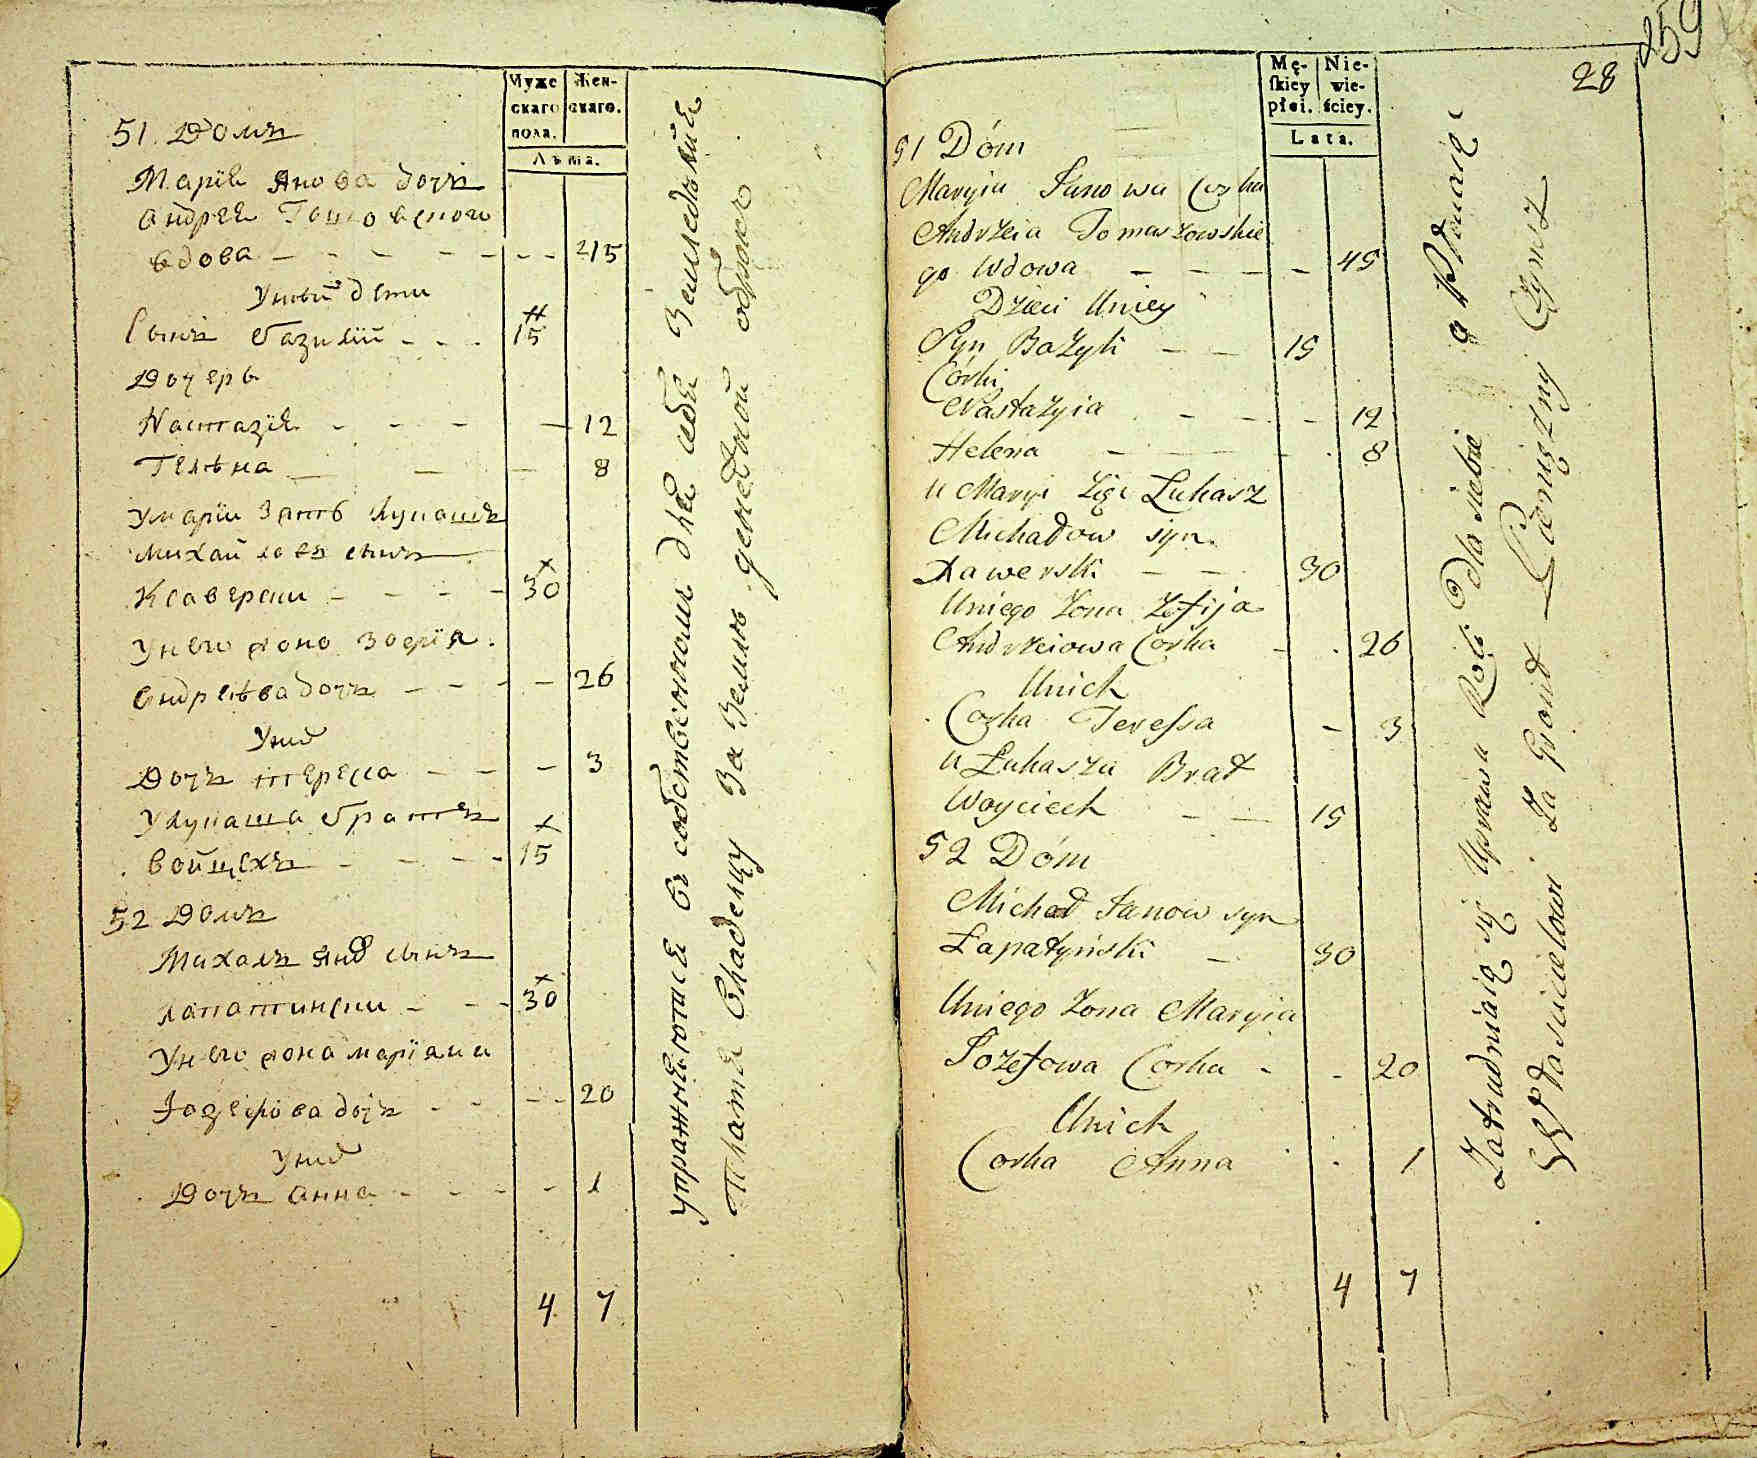 Мужескаго пола. Женскаго.
Лѣта.
51. Домъ
Марія Янова дочь
Андрея
вдова - - - - - - 45
Уней дети
Сынъ Базилій - - - 15
Дочерь
Настазія - - - - 12
Гелѣна - - - 8
Умаріи Зять Лукашъ
Михайловъ сынъ
Ксаверски - - - - 30
Унего жона Зофія
Андреѣва дочь - - - - 26
Уних
Дочь тереса - - - 3
Улукаша братъ
Войцехъ - - - - 15
52 Домъ
Михалъ Янов сынъ
Лапатински - - - 30
Унего жона маріяна
Іозефова дочь - - - - 20
Уних
Дочь анна - - - - 1
4 7
упражняются въ собственномъ для себя Земледѣлии
Платя Владелцу За Землю денежной оброкъ
259
28
Męskiey płci. Niewieściey.
Lata.
51 Dóm
Maryia Janowa Corka
Andrzeia Tomaszowskie
go Wdowa - - - - 45
Dzieci Uniey
Syn Bazyli - - 15
Córki
Nastazyia - - - 12
Helena - - - - 8
U Maryi Zięć Łukasz
Michałow syn
Xawerski - - 30
Uniego Zona Zofija
Andrzeiowa Corka - . 26
Unich
Corka Teressa - 3
U Łukasza Brat
Woyciech - - 15
52 Dóm
Michał Janow syn
Łapatyński - 30
Uniego Zona Maryia
Jozefowa Corka - - 20
Unich
Corka Anna . 1
4 7
Zatrudniaią się Uprawą Roli dla siebie a Płacaią
Właścicielowi Za Grunt Pieniężny Czynsz